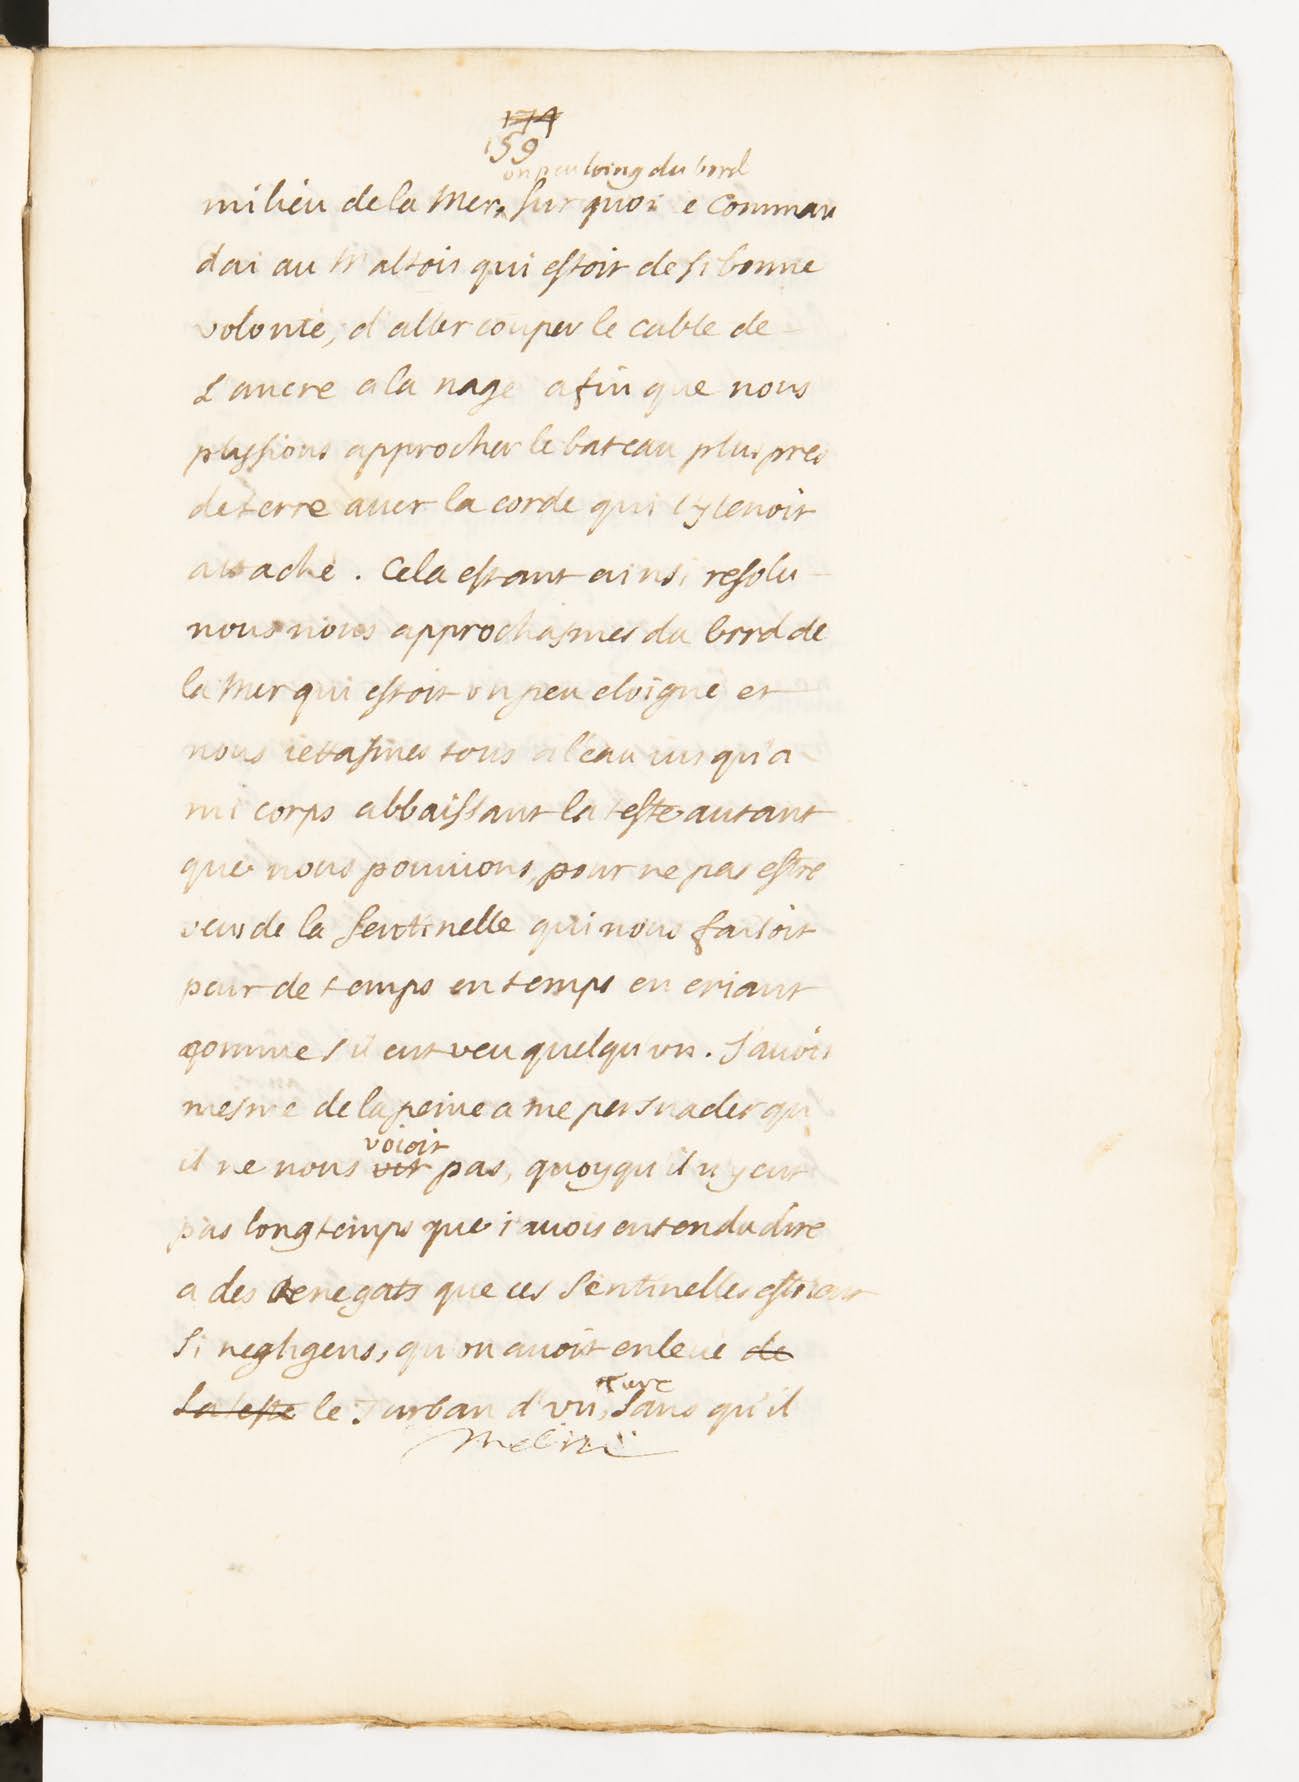 174
159
un peu loing du bord
milieu de la Mer, sur quoi ie Comman
dai au Maltois qui estoit de si bonne
volonté, d'aller couper le cable de
L'ancre a la nage afin que nous
pussions approcher le bateau plus pres
de terre avec la corde qui l'y tenoit
attaché. Cela estant ainsi resolu
nous nous approchasmes du bord de
la Mer qui estoit un peu eloigné et
nous iettasmes tous a l'eau iusqu'a
mi corps abbaissant la teste autant
que nous pouuions, pour ne pas estre
veus de la Sentinelle qui nous faisoit
peur de temps en temps en criant
comme s'il eut veu quelqu'vn. J'auois
mesme de la peine a me persuader qu
voioit
il ne nous vit pas, quoy qu'il n'y eut
pas longtemps que i'auois entendu dire
a des Renegats que ces Sentinelles estoient
si negligens, qu'on auoit enleué de
turc
La teste le Turban d'vn, Sans qu'il